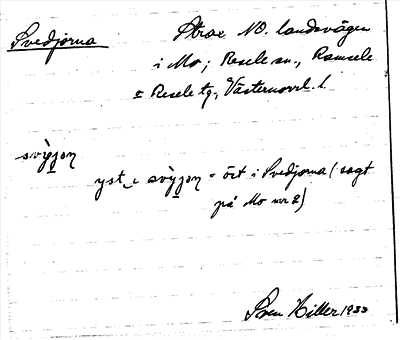 Svedjorna
Strax NO. landsvägen
i Mo; Resele sn., Ramsele
o Resele tg., Västernorrl. l.
svy̖jəṇ
yst i svy̖jəṇ = öst i Svedjorna (sagt
på Mo nr 2)
Sven Hiller 1933